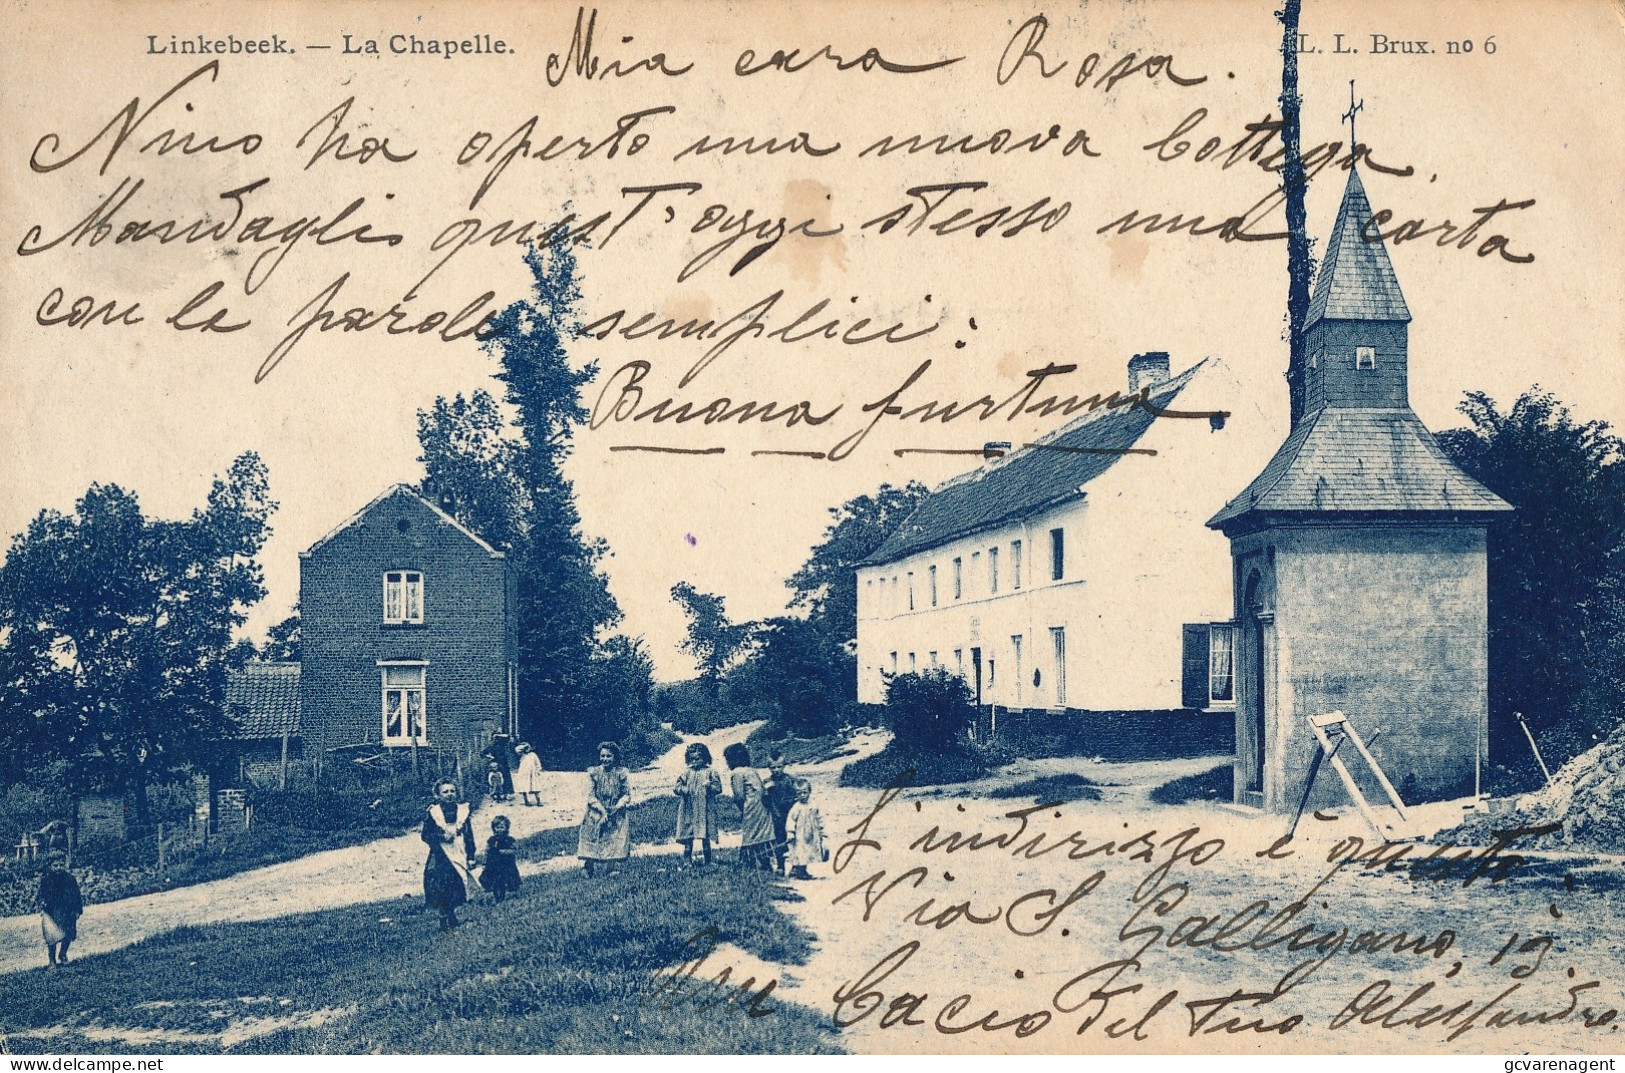 Linkebeek. — La Chapelle.
L. L. Brux. no 6
Mia cara Rosa.
Nino ha operto una nuova bottega,
Mandagli quest'oggi stesso una carta
con le parole semplici:
Buona furtuna
L'indirizzo è questo:
Via S. Galligano, 19.
Un bacio del tuo Alessandro.
gcvarenagent